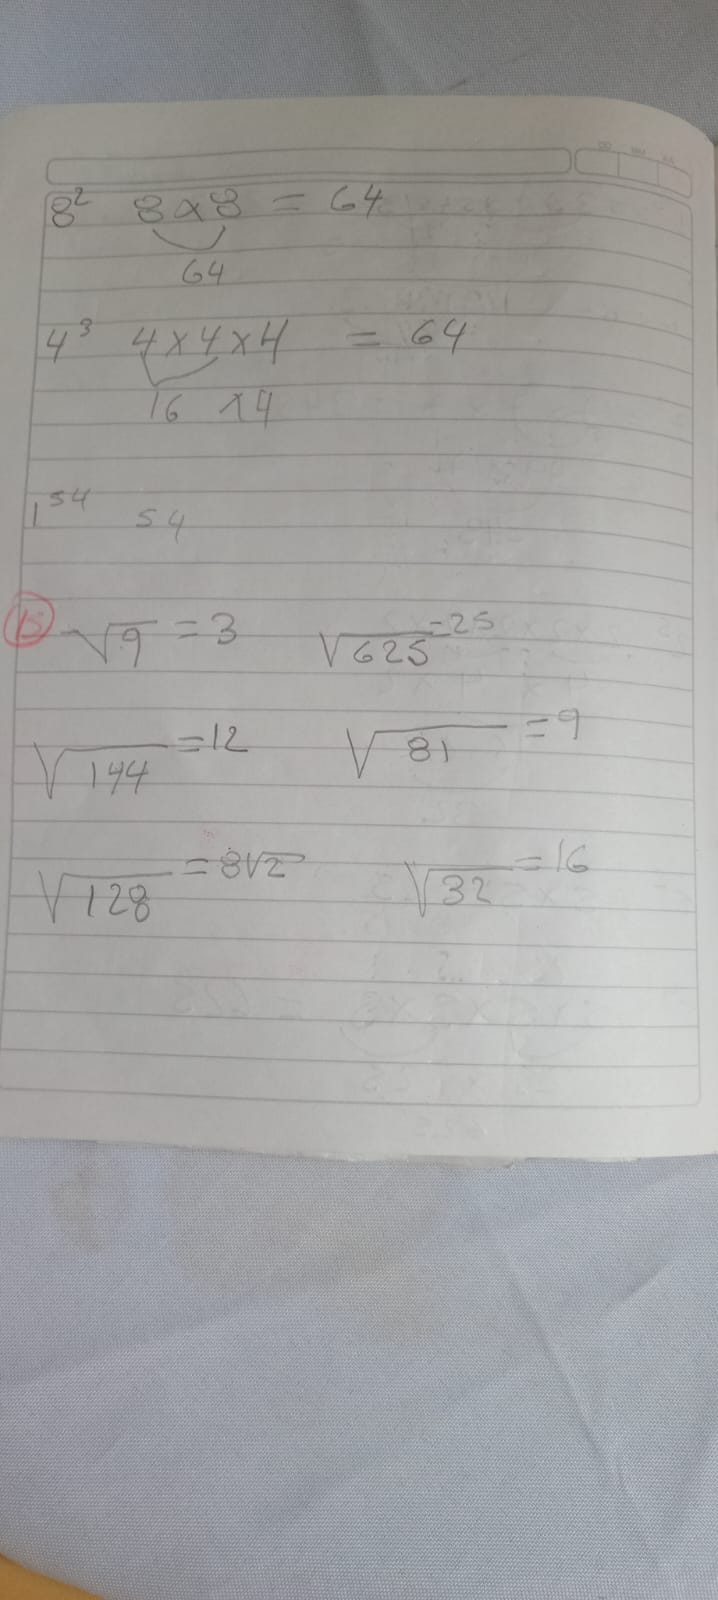 8² 8 x 8 = 64
64
4³ 4 x 4 x 4 = 64
16 x 4
1⁵⁴ 54
15 √9 = 3 √625 = 25
√144 = 12 √81 = 9
√128 = 8√2 √32 = 16